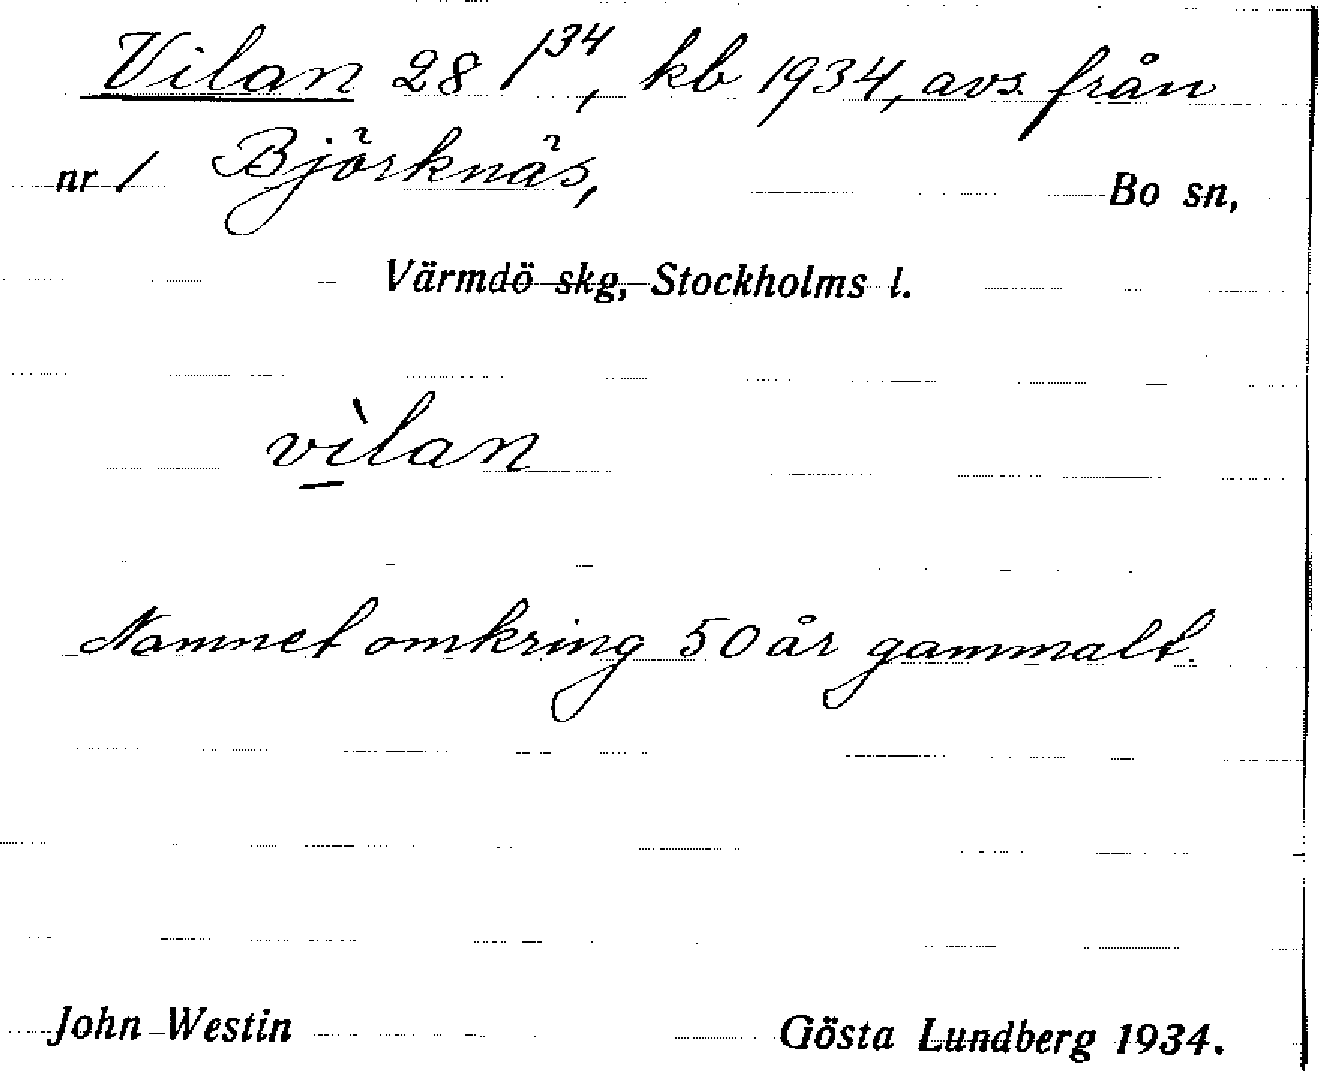 Vilan 28 1³⁴, kb 1934, avs. från
nr 1 Björknäs, Bo sn,
Värmdö skg, Stockholms l.
vìlan
Namnet omkring 50 år gammalt.
John Westin Gösta Lundberg 1934.